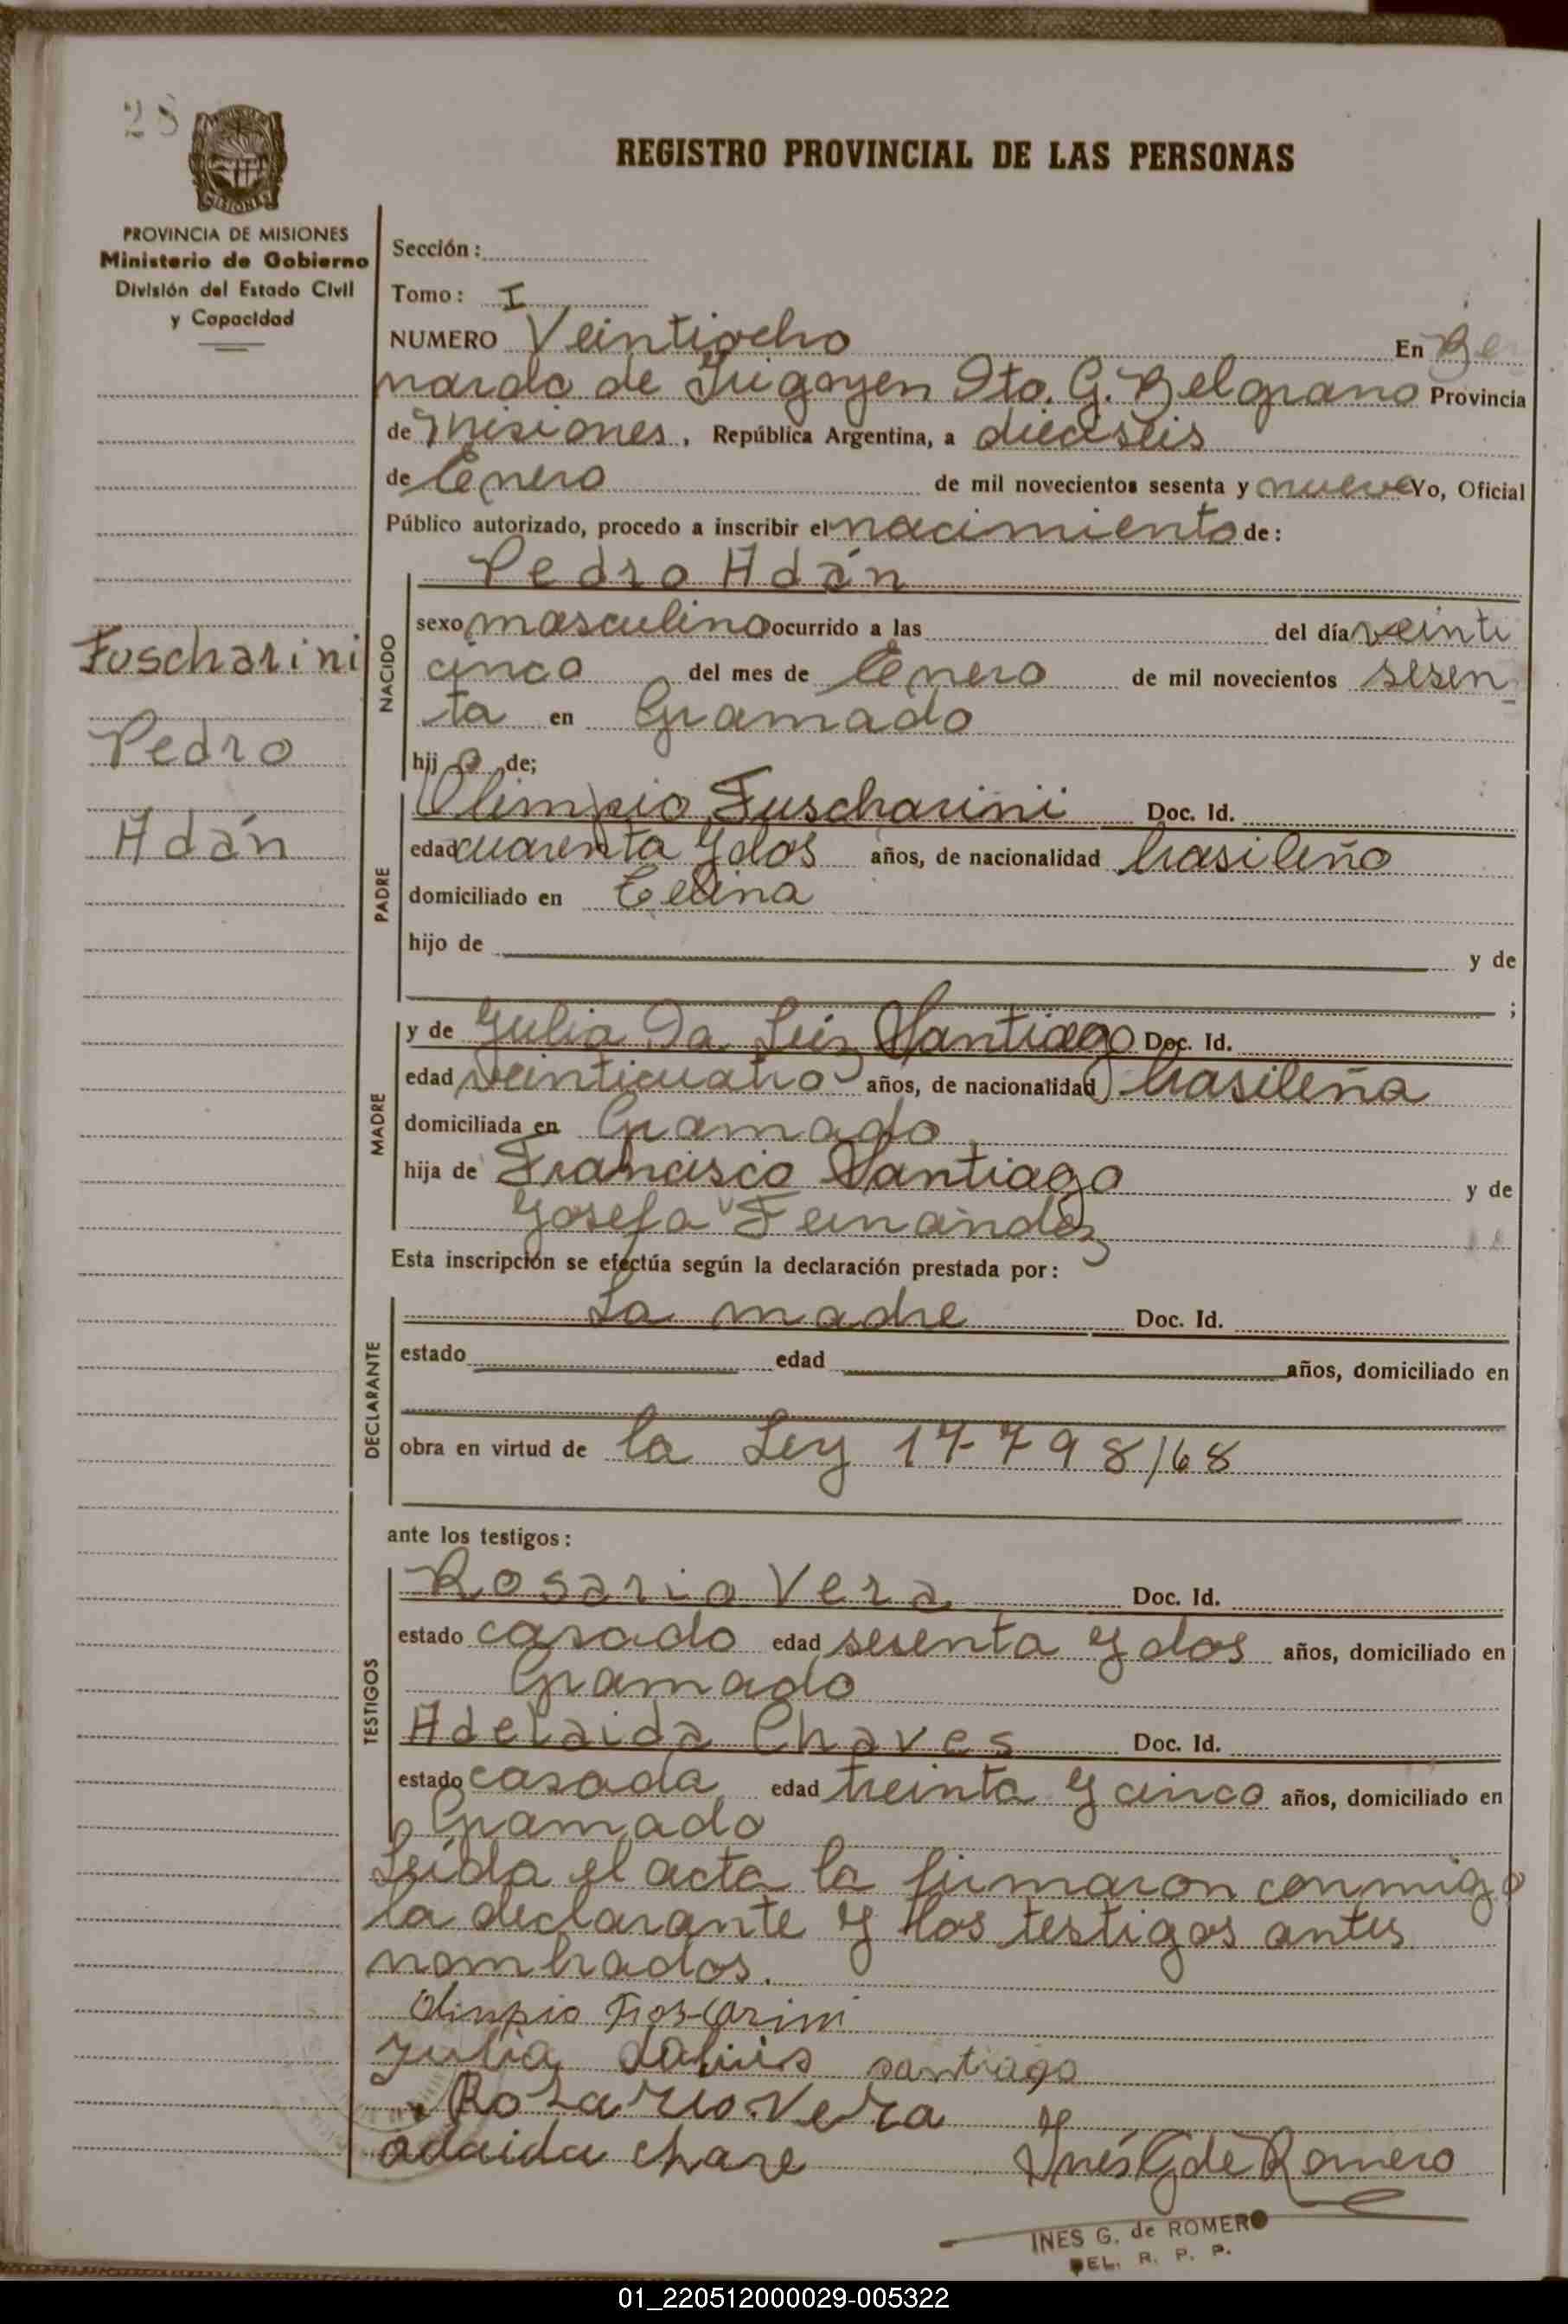 28
MISIONES
PROVINCIA DE MISIONES
Ministerio de Gobierno
División del Estado Civil
y Capacidad
REGISTRO PROVINCIAL DE LAS PERSONAS
Sección:
Tomo: I
NUMERO Veintiocho En Ber
nardo de Irigoyen Dto. G. Belgrano Provincia
de Misiones, República Argentina, a dieciseis
de Enero de mil novecientos sesenta y nueve Yo, Oficial
Público autorizado, procedo a inscribir el nacimiento de:
Fuscharini
Pedro
Adán
NACIDO
Pedro Adán
sexo masculino ocurrido a las del día veinti
cinco del mes de Enero de mil novecientos sesen
ta en Gramado
hij o de;
PADRE
Olimpio Fuscharini Doc. Id.
edad cuarenta y dos años, de nacionalidad brasileño
domiciliado en
hijo de y de
;
MADRE
y de Julia Da Luis Santiago Doc. Id.
edad veinticuatro años, de nacionalidad brasileña
domiciliada en Gramado
hija de Francisco Santiago y de
Josefa Fernández
Esta inscripción se efectúa según la declaración prestada por:
DECLARANTE
La madre Doc. Id.
estado edad años, domiciliado en
obra en virtud de la Ley 17798/68
ante los testigos:
TESTIGOS
Rosario Vera Doc. Id.
estado casado edad sesenta y dos años, domiciliado en
Gramado
Adelaida Chaves Doc. Id.
estado casada edad treinta y cinco años, domiciliado en
Gramado
Leída el acta la firmaron conmigo
la declarante y los testigos antes
nombrados.
Olinpio
Julia daluis santiago
Rozario Vera
adaida chave Inés G de Romero
INES G. de ROMERO
DEL. R. P. P.
01_220512000029-005322